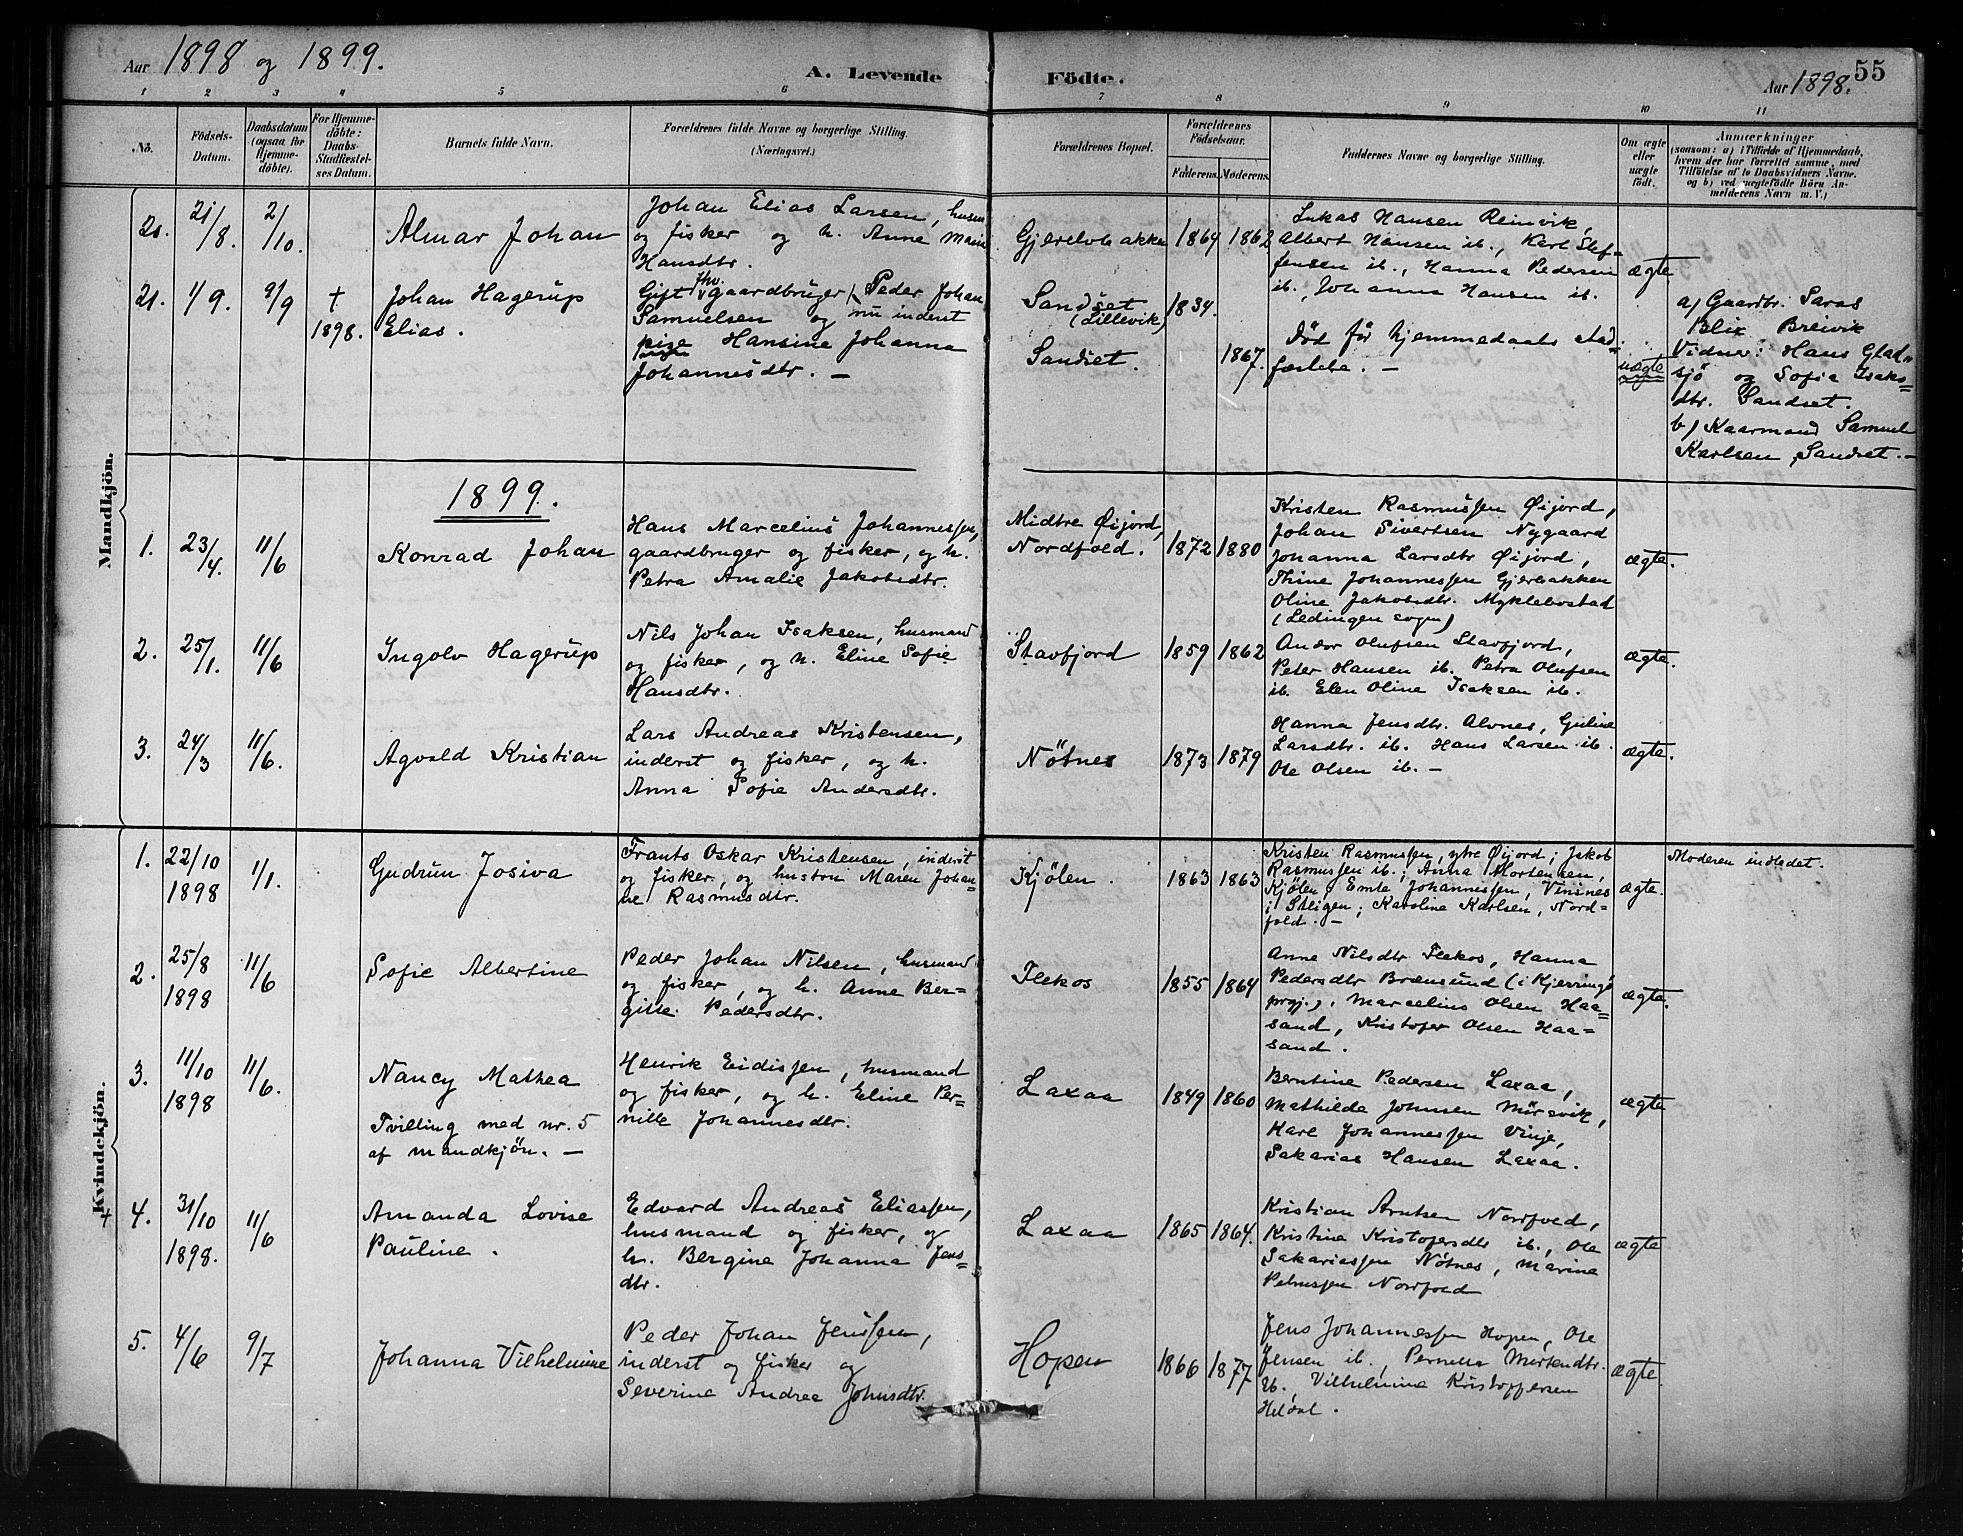 Aar 1898 og 1899.
A. Levende Födte.
Aar 1898.
55
1 2 3 4 5 6 7 8 9 10 11
No.
Födsels-Datum.
Daabsdatum (ogsaa for Hjemme-döbte).
For Hjemme-döbte: Daabs-Stadfæstel-ses Datum.
Barnets fulde Navn.
Forældrenes fulde Navne og borgerlige Stilling.
(Næringsvei.)
Forældrenes Bopæl.
Forældrenes Födselsaar.
Faderens. Moderens.
Faddernes Navne og borgerlige Stilling.
Om ægte eller uægte födt.
Anmærkninger
(saasom: a) i Tilfælde af Hjemmedaab,
hvem der har forrettet samme, med
Tilföielse af to Daabsvidners Navne.
og b) ved uægtefödte Börn An-
melderens Navn m. V.)
Mandkjön.
20. 21/8. 2/10. Almar Johan
Johan Elias Larsen, husm
og fisker og h. Anne Marie
Hansdtr.
1864 1862
Lukas Hansen Reinvik,
Albert Hansen ib., Karl Stef-
fensen ib., Hanna Pedersen
ib., Johanna Hansen ib.
ægte
21. 1/9. 9/9 † 1898.
Johan Hagerup
Elias.
Gift fhv. gaardbruger Peder Johan
Samuelsen og nu inderst
pige Hansine Johanna
Johannesdtr. —
Sandset
(Lillevik)
Sandset.
1834.
1867.
Död før hjemmedaabs stad-
fæstelse. —
uægte
a) Gaardbr. Saras
Blix Breivik
Vidner: Hans Glad-
sjö og Sofie Isaks-
dtr. Sandset.
b) Kaarmand Samuel
Karlsen, Sandset. —
1899.
1. 23/4. 11/6 Konrad Johan
Hans Marcelius Johannessen,
gaardbruger og fisker, og h.
Petra Amalie Jakobsdtr.
Midtre Øijord,
Nordfold.
1872 1880
Kristen Rasmussen Øijord,
Johan Sivertsen Nygaard
Johanna Larsdtr Øijord,
Thine Johannessen Gjerbakken
Oline Jakobsdtr. Myklebostad
(Ledingen sogn)
ægte.
2. 25/1. 11/6 Ingolv Hagerup
Nils Johan Isaksen, husmand
og fisker, og h. Eline Sofie
Hansdtr.
Stavfjord
1859 1862
Andor Olufsen Stavfjord,
Peter Hansen ib. Petra Olufsen
ib. Elen Oline Isaksen ib.
ægte.
3. 24/3 11/6. Agvald Kristian
Lars Andreas Kristensen,
inderst og fisker, og h.
Anna Sofie Andersdtr.
Nötnes
1873 1879
Hanna Jensdtr. Alvnes, Guline
Larsdtr. ib. Hans Larsen ib.
Ole Olsen ib. —
ægte.
Kvindekjön.
1. 22/10 1898 1/1. Gudrun Josiva
Frants Oskar Kristensen, inderst
og fisker, og hustru Maren Johan-
ne Rasmusdtr.
Kjölen.
1863 1863
Kristen Rasmussen, ytre Øijord; Jakob
Rasmussen ib.; Anna Mortensen,
Kjölen; Emte Johannessen, Vinsnes
i Steigen; Karoline Karlsen, Nord-
fold. —
ægte.
Moderen indledet.
2. 25/8 1898 11/6 Sofie Albertine
Peder Johan Nilsen, husmand
og fisker, og h. Anne Ber-
gitte Pedersdtr.
Flekos
1855 1864
Anne Nilsdtr Flekos, Hanna
Pedersdtr Brensund (i Kjerringö
prgj.), Marcelius Olsen Haa-
sand, Kristofer Olsen Haa-
sand.
ægte.
3. 11/10 1898 11/6. Nancy Mathea
Tvilling med nr. 5
af mandkjön. —
Henrik Eidissen, husmand
og fisker, og h. Eline Per-
nille Johannesdtr.
Laxaa
1849 1860
Berntine Pedersen Laxaa,
Mathilde Johnsen Mörsvik,
Karl Johannessen Vinje,
Sakarias Hansen Laxaa.
ægte
+ 4. 31/10 1898. 11/6 Amanda Lovise
Pauline.
Edvard Andreas Eliassen,
husmand og fisker, og
h. Bergine Johanna Jens-
dtr.
Laxaa
1865 1864.
Kristian Arntsen Nordfold,
Kristine Kristofersdtr ib., Ole
Sakariassen Nötnes, Marine
Petersen Nordfold
ægte
5. 4/6 9/7 Johanna Vilhelmine
Peder Johan Jenssen,
inderst og fisker og
Severine Andrea Johnsdtr.
Hopen
1866 1877
Jens Johannessen Hopen, Ole
Jensen ib., Pernella Mortendtr.
ib., Vilhelmine Kristoffersen
Heldal.
ægte.